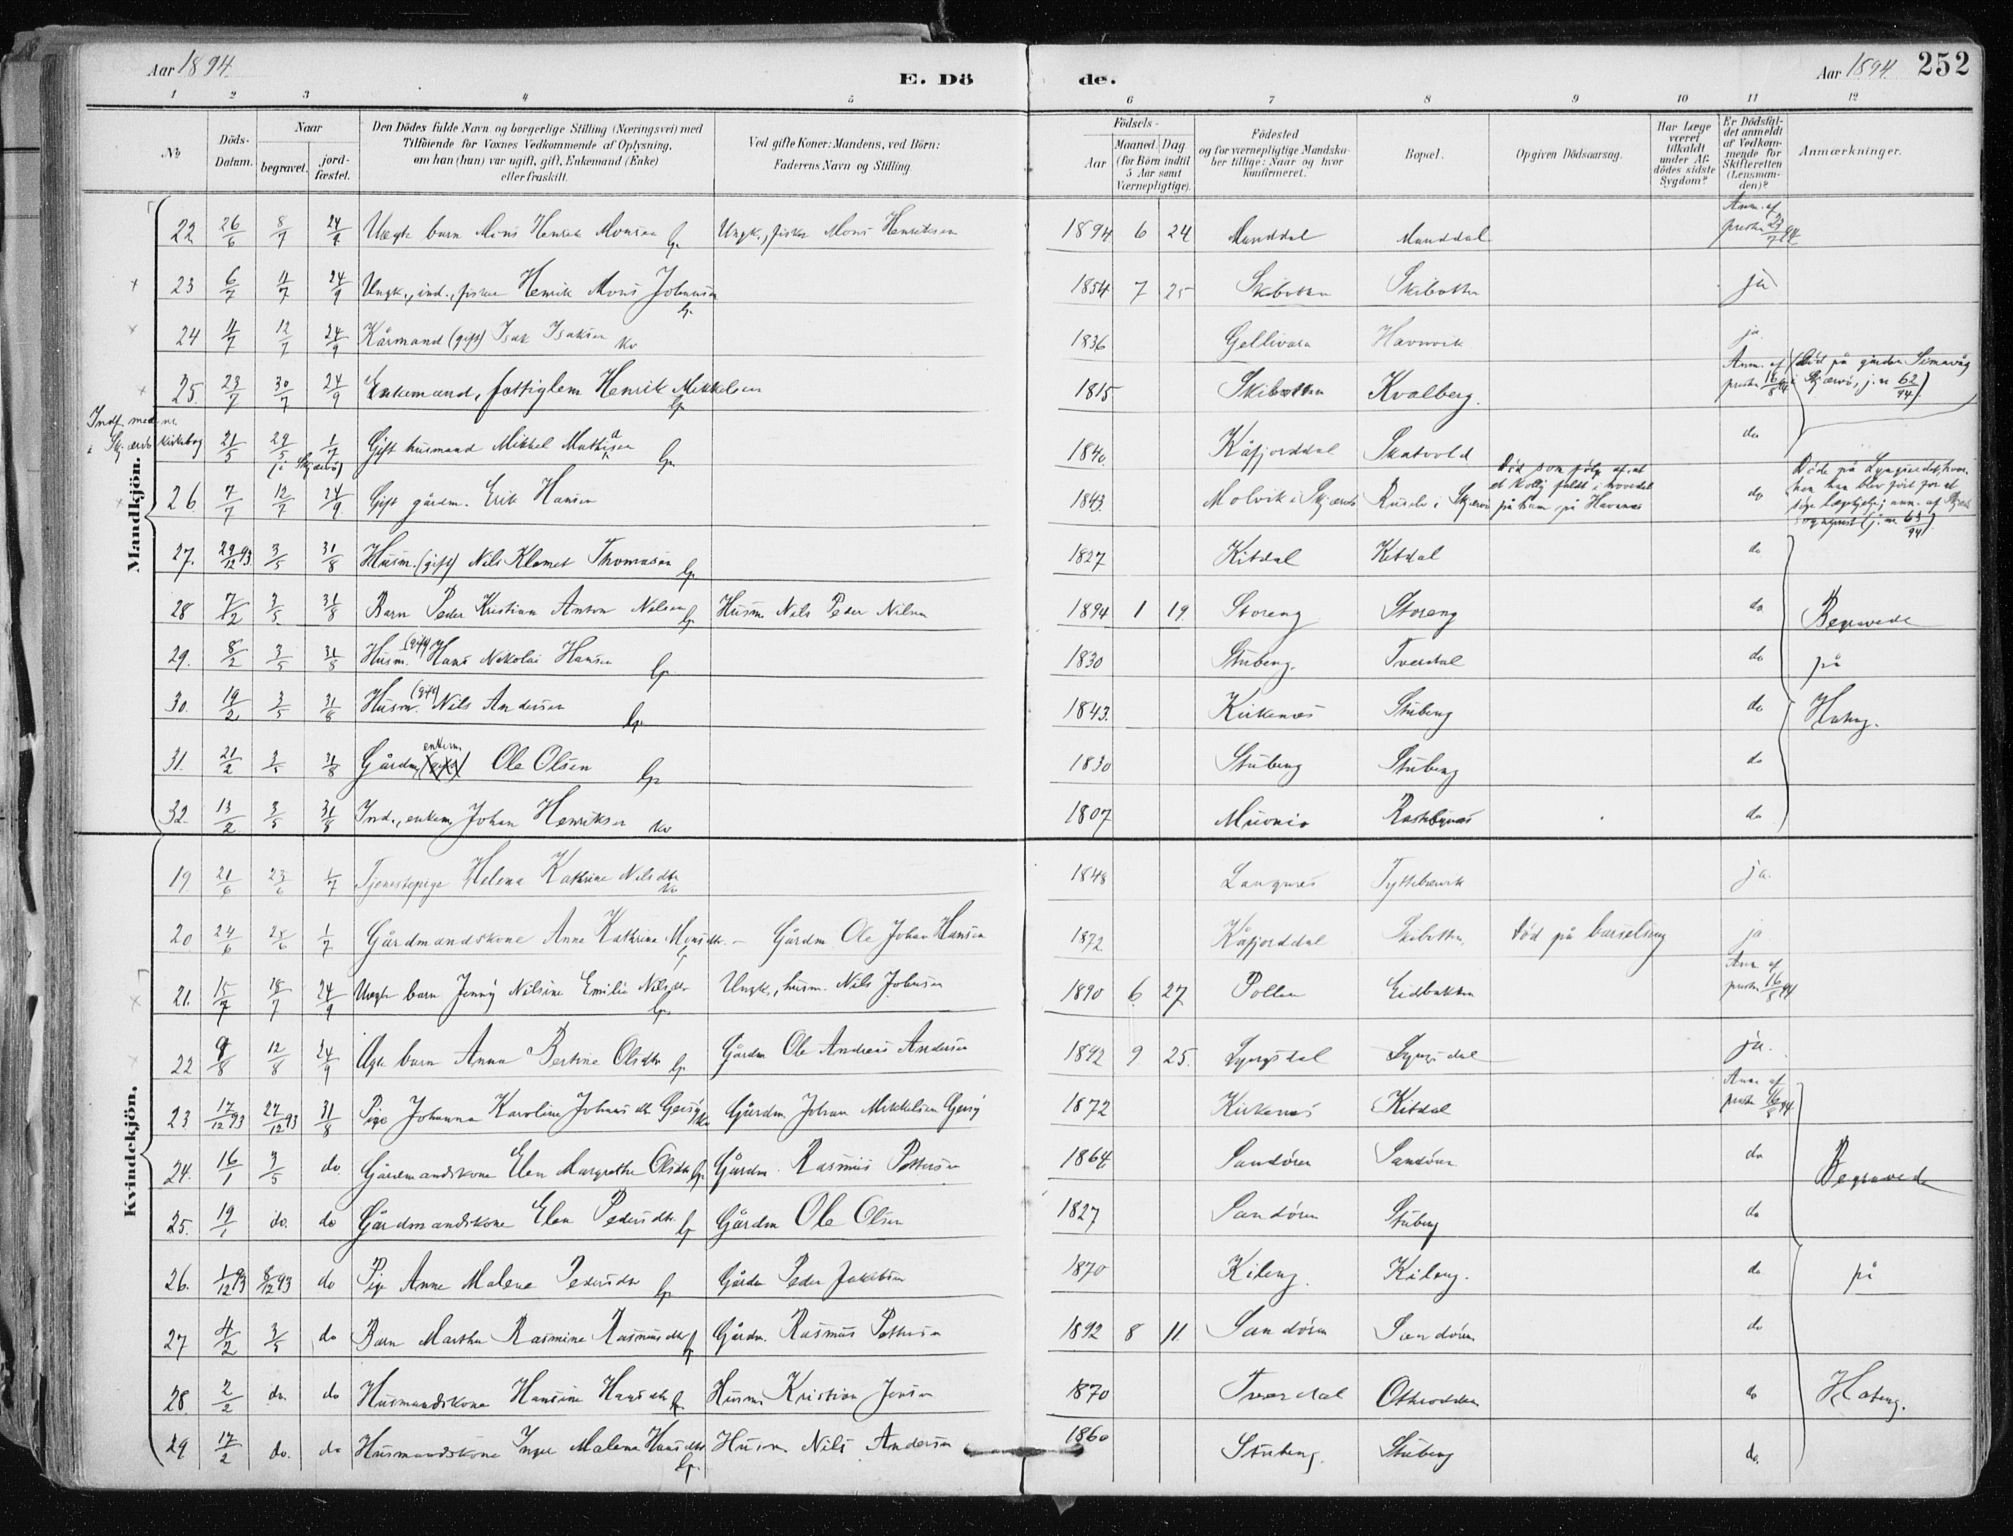 Aar 1894.
E. Dö
de.
Aar 1894.
252
1 2 3 4 5 6 7 8 9 10 11 12
No
Döds-Datum.
Naar
begravet.
jord-fæstet.
Den Dödes fulde Navn og borgerlige Stilling (Næringsvei) med
Tilföiende for Voxnes Vedkommende af Oplysning,
om han (hun) var ugift, gift, Enkemand (Enke)
eller fraskilt.
Ved gifte Koner: Mandens, ved Börn:
Faderens Navn og Stilling.
Födsels-
Aar
Maaned. Dag
(for Börn indtil
5 Aar samt
Værnepligtige).
Födested
og for værnepligtige Mandska-
ber tillige: Naar og hvor
konfirmeret.
Bopæl.
Opgiven Dödsaarsag.
Har Læge
været
tilkaldt
under Af-
dödes sidste
Sygdom?
Er Dödsfal-
det anmeldt
af Vedkom-
mende for
Skifteretten
(Lensman-
den)?
Anmærkninger.
Mandkjön.
22 26/6 8/7 24/9 Uægte barn Mons Henrik Monsen lp. Ungk., fisker Mons Henriksen 1894 6 24 Manddal Manddal Anm. af presten 23/7 94
23 6/7 11/7 24/9 Ungk., ind., fisker Henrik Mons Johansen lp. 1854 7 25 Skibotten Skibotten ja
24 11/7 12/7 24/9 Kårmand (gift) Isak Isaksen kv 1836 Gellivara Havnvik ja
25. 23/7 30/7 24/9 Enkemand, fattiglem Henrik Mikkelsen lp. 1815 Skibotten Kvalberg. Anm. af presten 16/8 94 (Död på gården Simavåg i Skjærvö, j.nr 62/94).
Indf. med nr.
i Skjærvö kirkebog 21/5 29/5 1/7 (i Skjærvö) Gift husmand Mikkel Mathisen lp. 1840. Kåfjorddal Skatvold do
26. 7/7 12/7 24/9. Gift gårdm. Erik Hansen 1843. Molvik i Skjærvö i Skjærvö Död som fölge af, at et faldt i hovedet på ham på Havnnæs do Döde på Lyngseidet, hvor han blev fört for at söge lægehjelp; anm. af Skjærvö sogneprest (j. nr. 63/94).
27. 29/12 93. 3/5 31/8 Husm. (gift) Nils Klemet Thomassen lp. 1827 Kitdal Kitdal do
28 7/2 3/5. 31/8 Barn Peder Kristian Anton Nilsen lp. Husm. Nils Peder Nilsen 1894 1 19. Storeng Storeng do Begravede
29. 8/2 3/5 31/8 Husm. (gift) Hans Nikolai Hansen lp. 1830 Stuberg. Tverdal do på
30. 19/2 3/5 31/8 Husm. (gift) Nils Andersen lp. 1843. Kirkenæs Stuberg do Hateng.
31. 21/2 3/5 31/8 Gårdm. enkem. Ole Olsen lp. 1830 Stuberg Stuberg do
32. 13/2 3/5 31/8 Ind., enkem. Johan Henriksen kv 1807 Muonio Rastebynæs do
Kvindekjön.
19. 21/6 23/6 1/7 Tjenestepige Helena Katrine Nilsdtr kv 1848 Langnæs Tyttebærvik ja.
20 24/6 28/6 1/7 Gårdmandskone Anne Katrine Monsdtr. – Gårdm Ole Johan Hansen 1872 Kåfjorddal Skibotten, död på barselseng ja
21. 15/7 18/7 24/9 Uægte barn Jenny Nilsine Emilie Nilsdtr lp. Ungk., husm. Nils Johnsen 1890 6 27 Pollen Eidbakken Anm. af presten 16/8 94
22 9/8 12/8 24/9 Ægte barn Anna Bertine Olsdtr lp. Gårdm Ole Andreas Andersen 1892 9. 25. Lyngsdal Lyngsdal ja.
23 17/12 93 27/12 93 31/8 Pige Johanna Karoline Johansdtr Gersy kv Gårdm. Johan Mikkelsen Gersy 1872 Kirkenæs Kitdal Anm. af presten 16/8 94.
24. 16/1 3/5 do Gårdmandskone Elen Margrethe Olsdtr lp. Gårdm. Rasmus Pettersen 1864 Sandören Sandören do Begravede
25. 19/1 do. do Gårdmandskone Elen Pedersdtr lp Gårdm Ole Olsen 1827 Sandören Stuberg do
26. 1/12 93 8/12 93 do Pige Anne Malene Pedersdtr lp. Gårdm Peder Jakobsen 1870 Kileng. Kileng. do på
27 4/2 3/5 do Barn Martha Rasmine Rasmusdtr lp Gårdm. Rasmus Pettersen 1892 8 11. Sandören Sandören do
28. 2/2 do. do Husmandskone Hansine Hansdtr lp. Husm. Kristian Jensen 1870 Tverdal do Hateng.
29 17/2 do. do Husmandskone Inger Malene Hansdtr lp. Husm Nils Andersen 1860 Stuberg. Stuberg do.